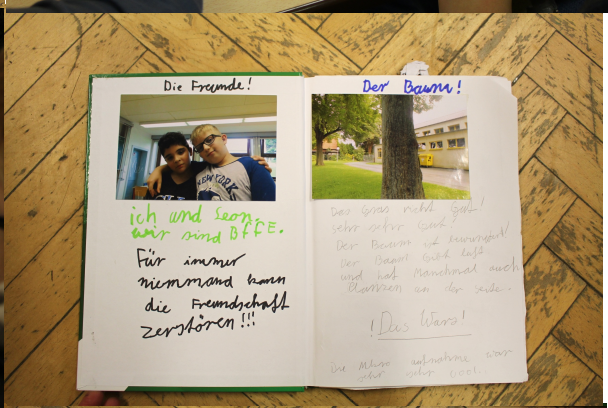 Die Freunde!
NEW YORK
ich und Leon.
wir sind BFFE.
Für immer
niemmand kann
die Freundschaft
zerstören!!!
Der Baum!
Das Gras richt Gut!
sehr sehr Gut!
Der Baum ist
Der Baum Gibt luft
und hat Manchmal auch
an der seite.
! Das Wars!
die
sehr sehr cool..